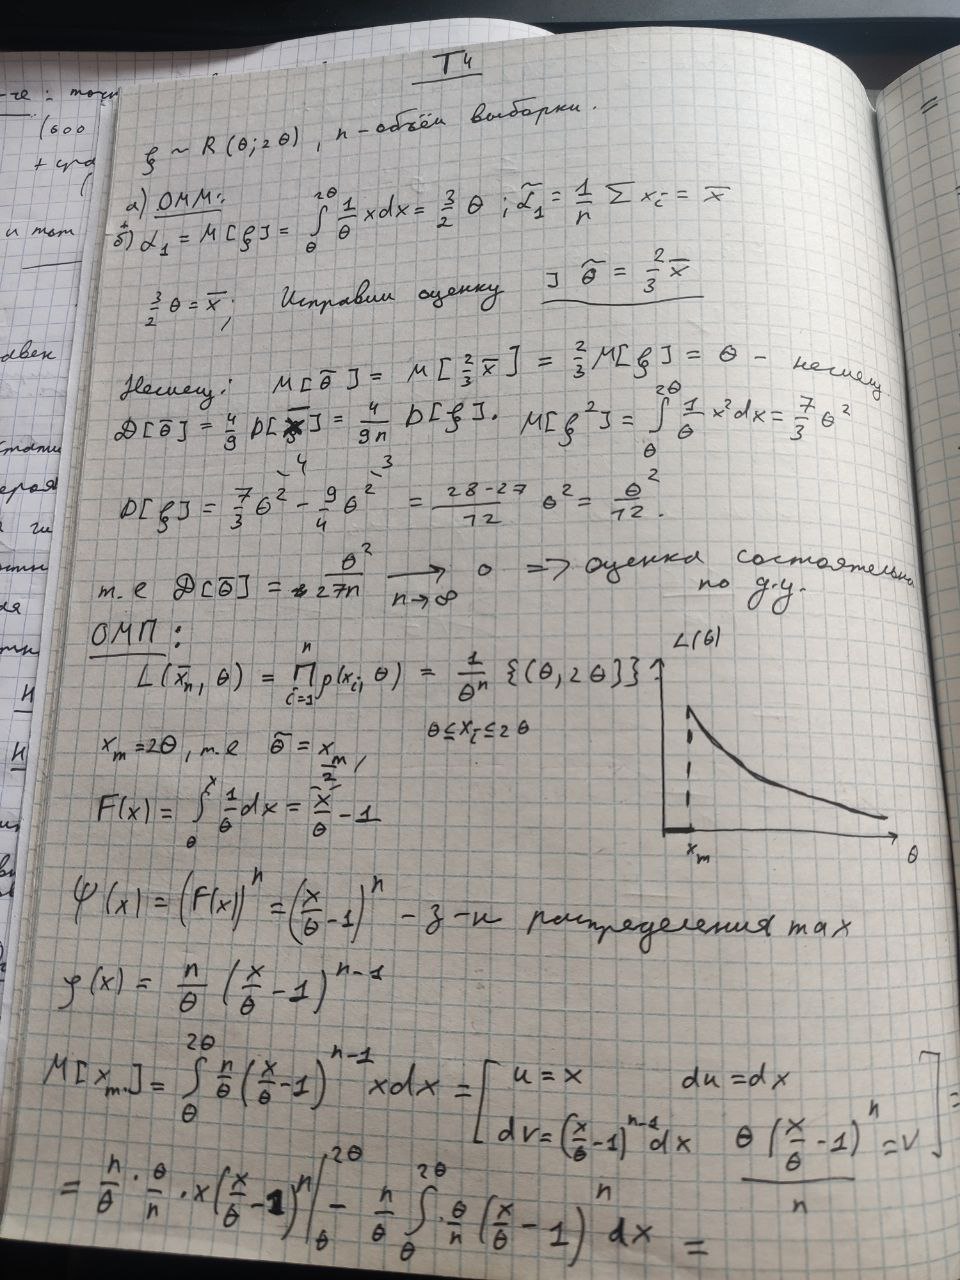 T4
ξ ~ R(θ; 2θ), n - объём выборки.
а) ОММ:
+
б) α₁ = M[ξ] = ∫_θ^{2θ} 1/θ x dx = 3/2 θ ; α̃₁ = 1/n Σ xᵢ = x̄
3/2 θ = x̄; Исправим оценку ] θ̃ = 2/3 x̄
Несмещ: M[θ̃] = M[2/3 x̄] = 2/3 M[ξ] = θ - несмещ
D[θ̃] = 4/9 D[x̄] = 4/9n D[ξ]. M[ξ²] = ∫_θ^{2θ} 1/θ x² dx = 7/3 θ²
D[ξ] = 7/3 θ² - 9/4 θ² = (28-27)/12 θ² = θ²/12.
т.е D[θ̃] = θ²/27n → 0 n→∞ => оценка состоятельна
по д.у.
ОМП:
L(x̄ₙ, θ) = ∏_{i=1}^n p(xᵢ, θ) = 1/θⁿ {(θ, 2θ)}
L(θ)
θ ≤ xᵢ ≤ 2θ
xₘ = 2θ, т.е θ̃ = xₘ/2,
F(x) = ∫_θ^x 1/θ dx = x/θ - 1
xₘ
θ
Ψ(x) = (F(x))ⁿ = (x/θ - 1)ⁿ - з-н распределения max
φ(x) = n/θ (x/θ - 1)^{n-1}
M[xₘ] = ∫_θ^{2θ} n/θ (x/θ - 1)^{n-1} x dx = [u = x du = dx
dv = (x/θ - 1)^{n-1} dx θ(x/θ - 1)ⁿ/n = v] =
= n/θ · θ/n · x(x/θ - 1)ⁿ |_θ^{2θ} - n/θ ∫_θ^{2θ} · θ/n (x/θ - 1)ⁿ dx =